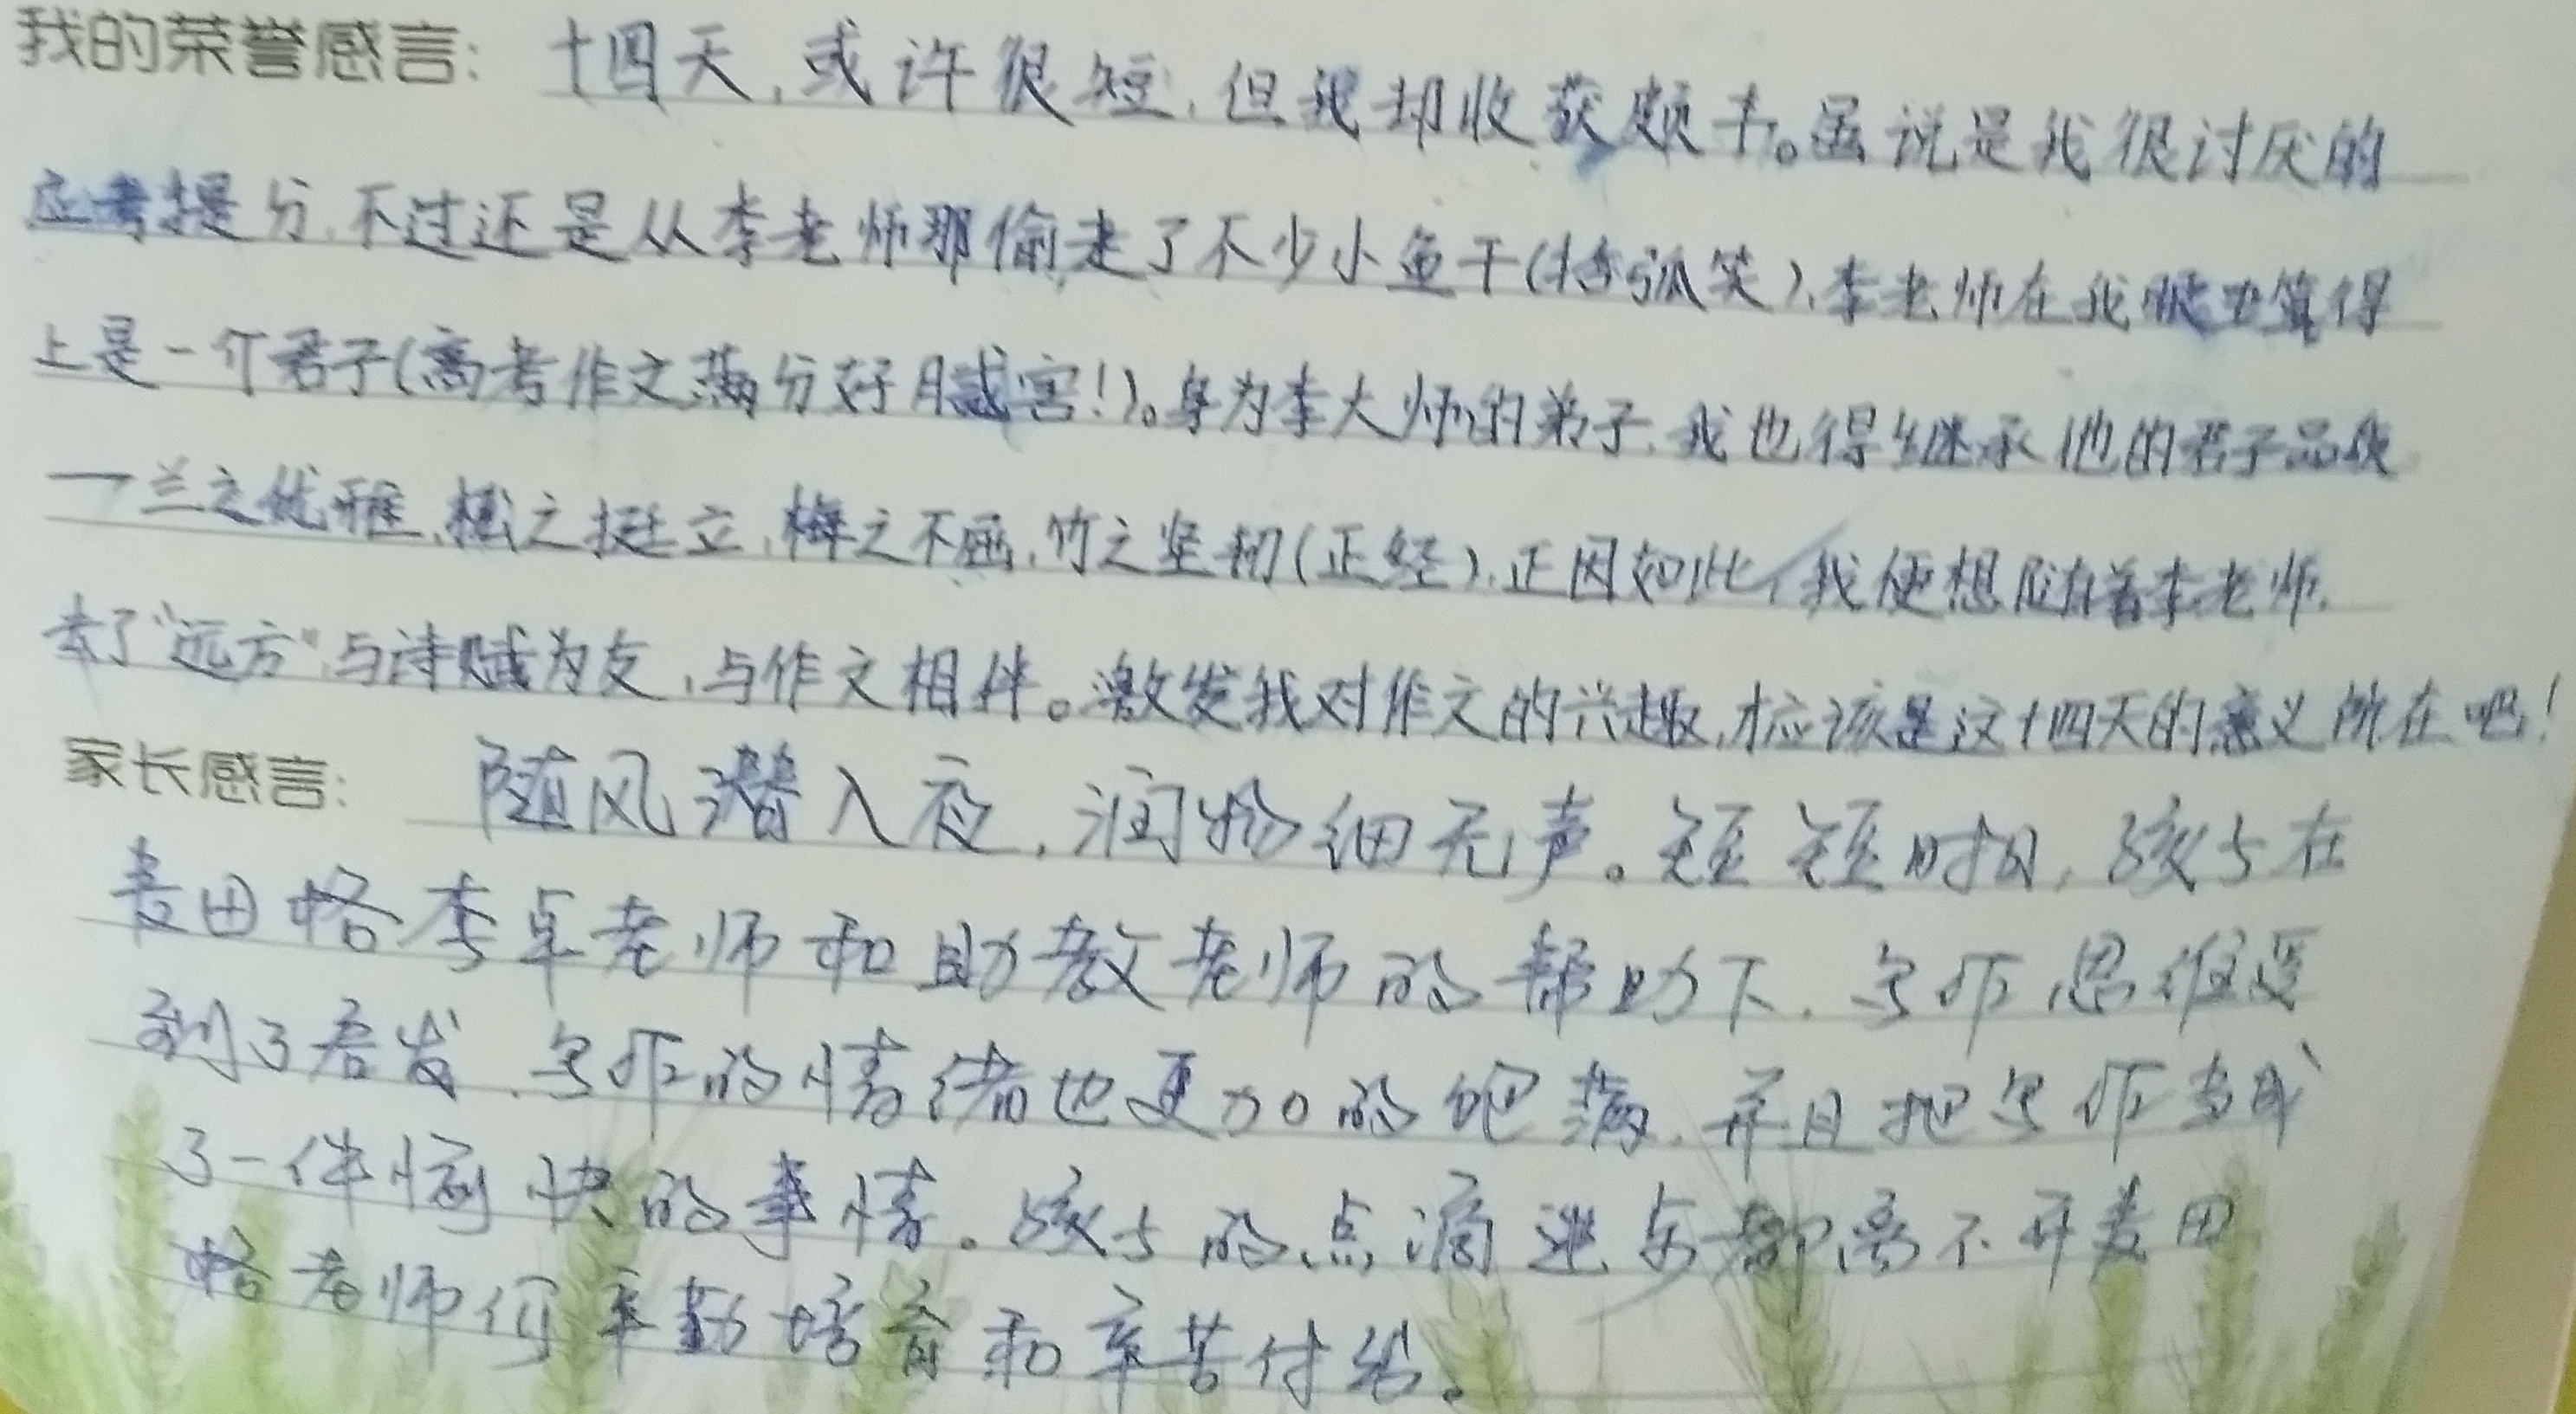 我的荣誉感言: 十四天,或许很短,但我却收获颇丰。虽说是我很讨厌的
应考提分,不过还是从李老师那偷走了不少小鱼干(括弧笑),李老师在我眼里算得
上是一个君子(高考作文满分好月臧害!)。身为李大师的弟子,我也得继承他的君子品质
一兰之优雅,松之挺立,梅之不屈,竹之坚韧(正经),正因如此,我便想随着李老师,
去了“远方”,与诗赋为友,与作文相伴。激发我对作文的兴趣,才应该是这十四天的意义所在吧!
家长感言: 随风潜入夜,润物细无声。短短时日,孩子在
麦田格李卓老师和助教老师的帮助下,写作思维受
到了启发,写作的情绪也更加的饱满,并且把写作当成
了一件愉快的事情。孩子的点滴进步都离不开麦田
格老师们辛勤培育和辛苦付给。